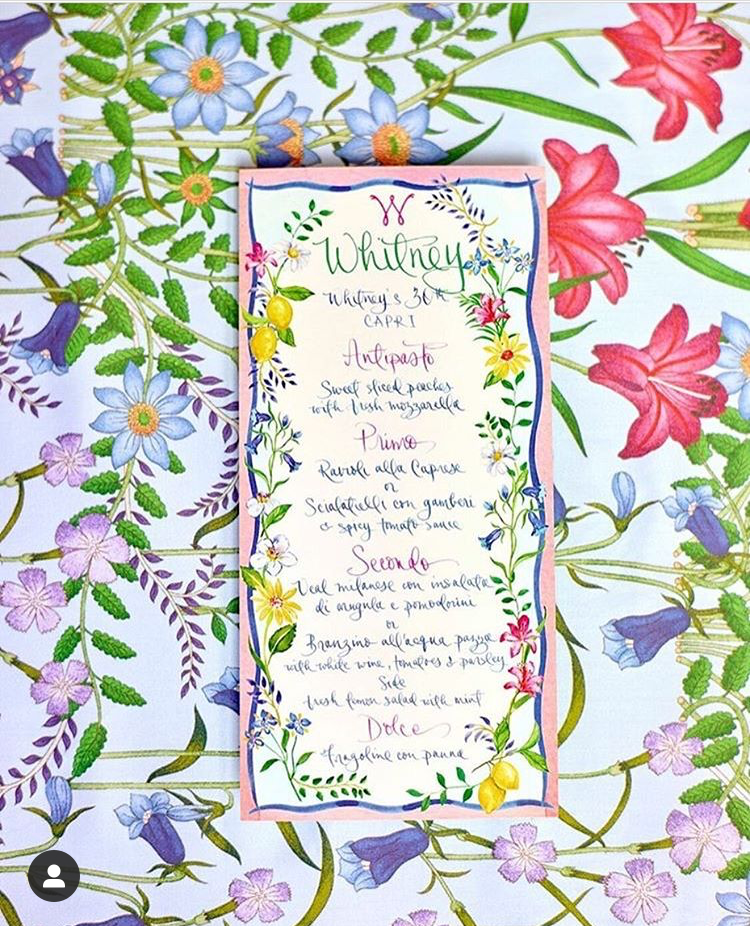 W
Whitney
Whitney's 30th
CAPRI
Antipasto
Sweet sliced peaches
with fresh mozzarella
Primo
Ravioli alla Caprese
or
Scialatielli con gamberi
& spicy tomato sauce
Secondo
Veal milanese con insalata
di arugula e pomodorini
or
Branzino all'acqua pazza
with white wine, tomatoes & parsley
Side
fresh lemon salad with mint
Dolce
Fragoline con panna